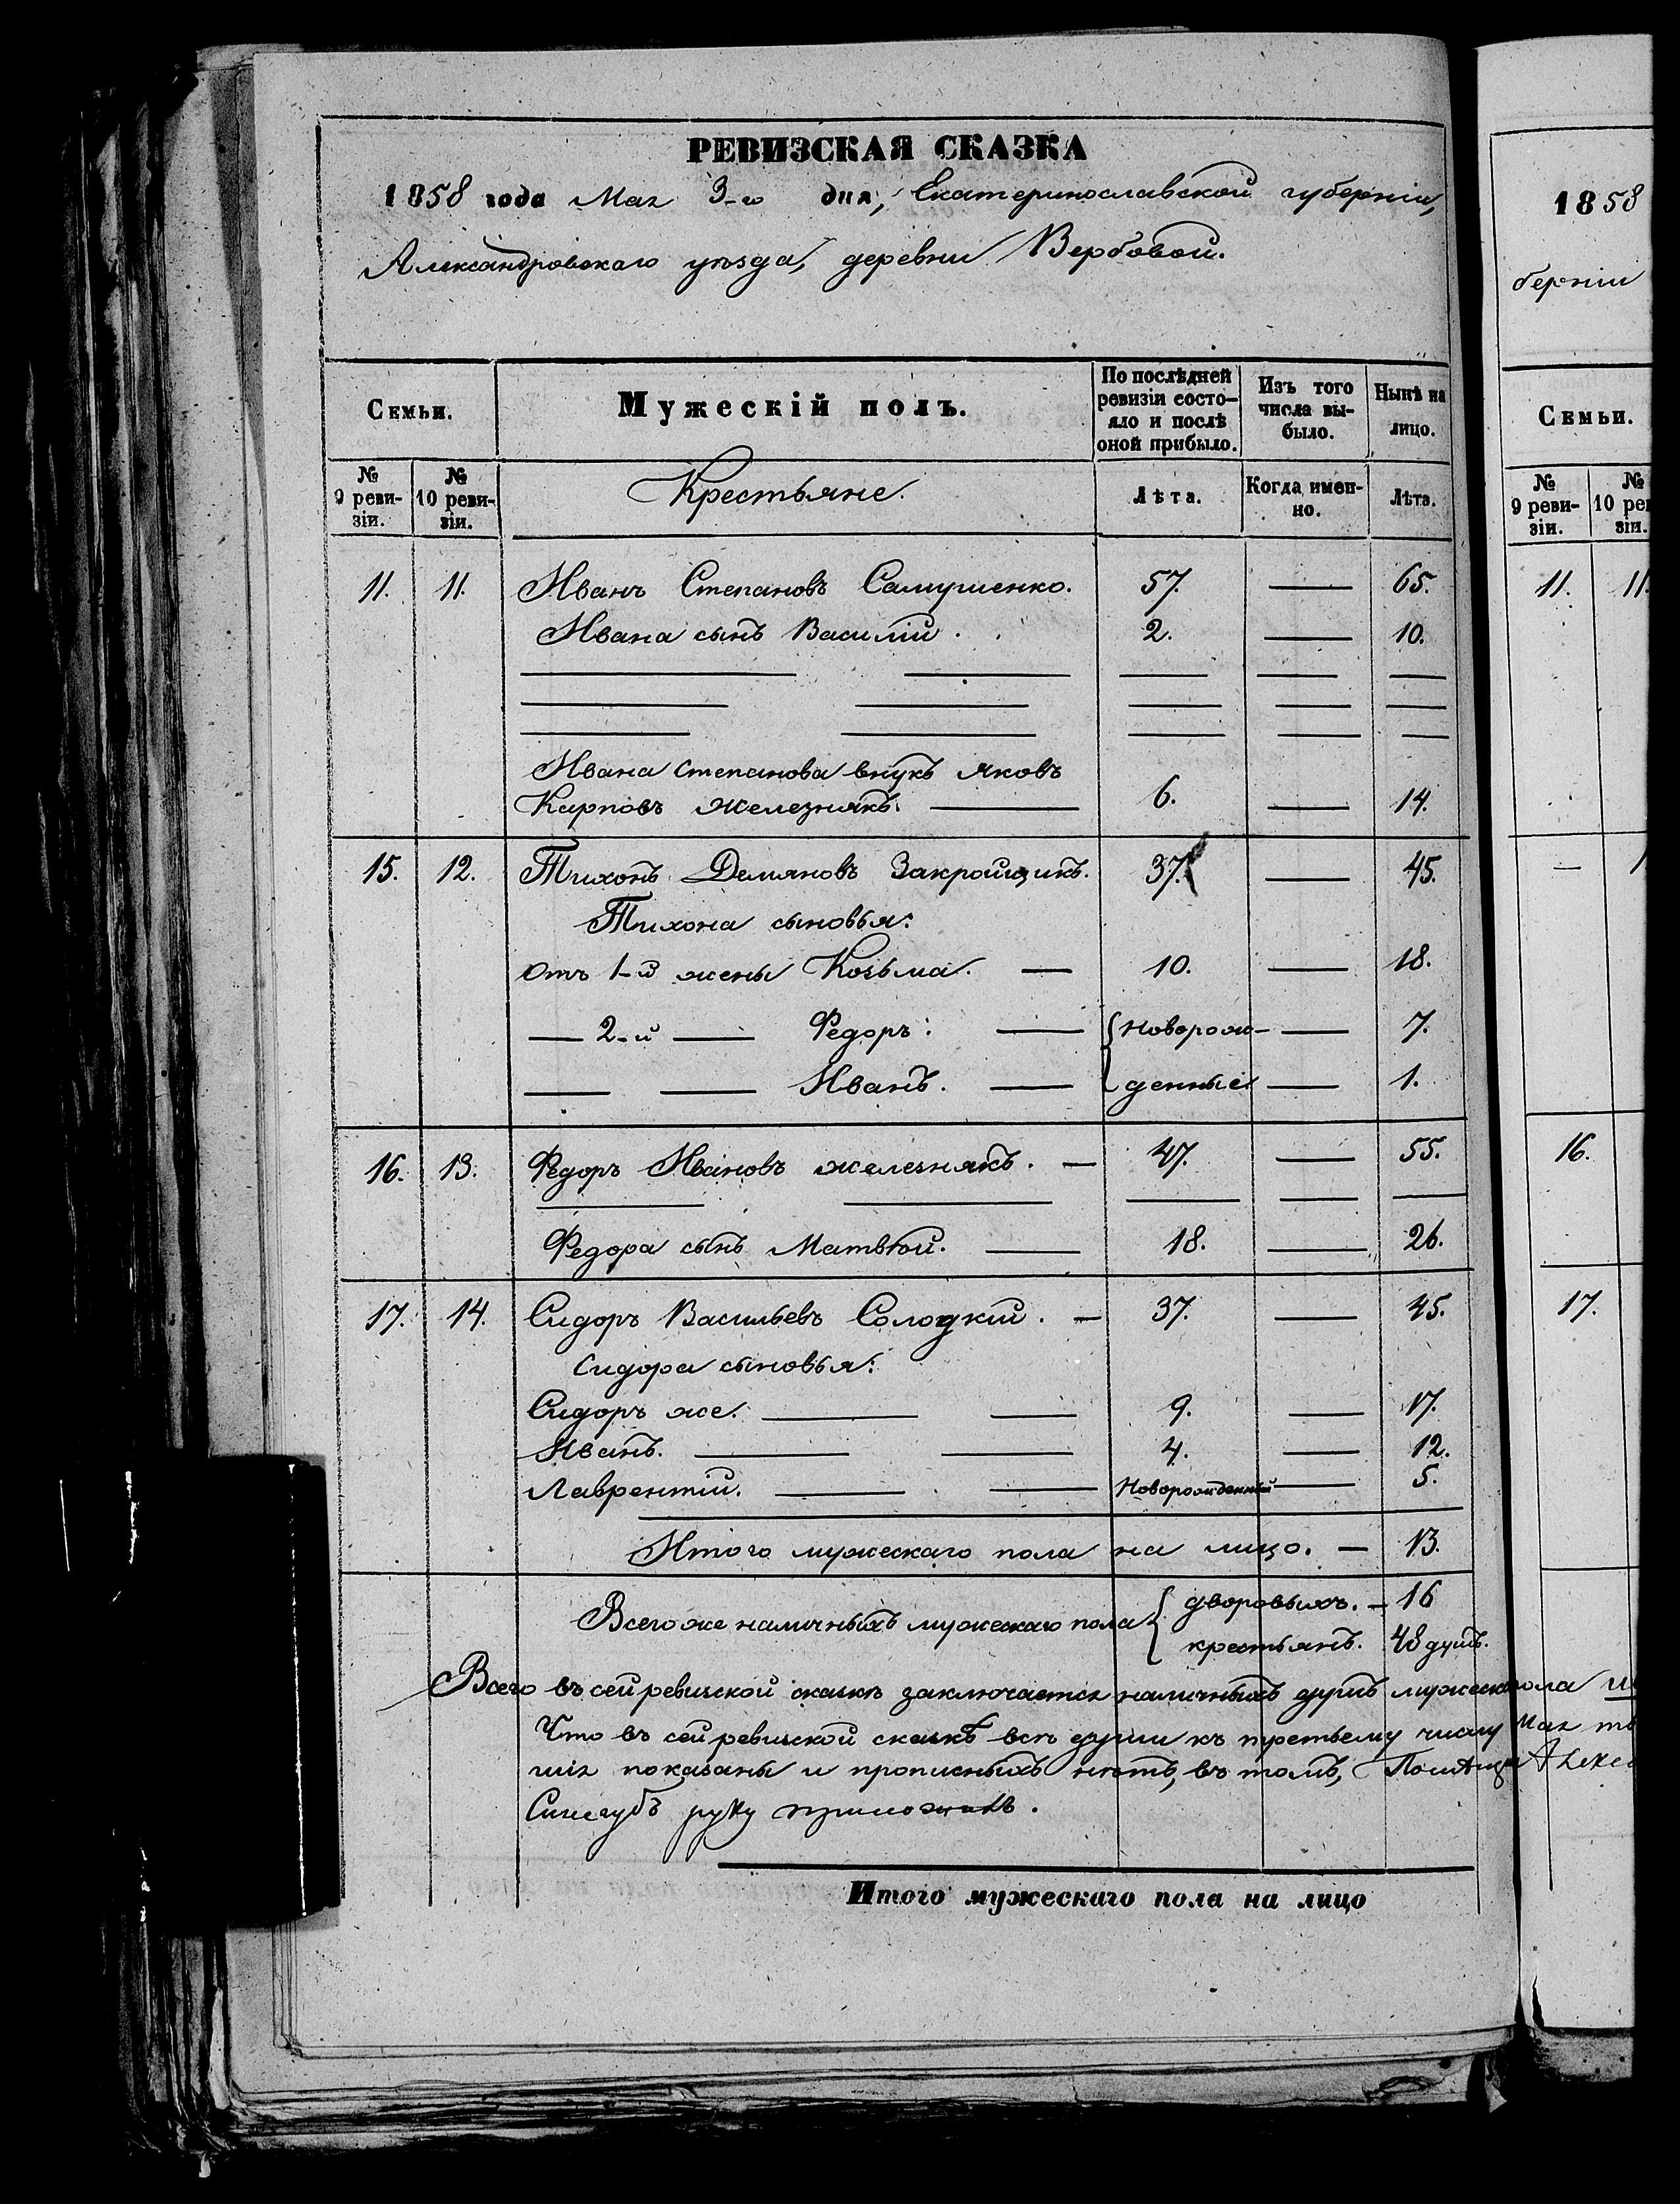 РЕВИЗСКАЯ СКАЗКА
1858 года Мая 3-го дня, Екатеринославской губерніи,
Александровскаго уѣзда, деревни Вербовой.
Семьи.
Мужескій полъ.
По послѣдней ревизіи состояло и послѣ оной прибыло.
Изъ того числа выбыло.
Нынѣ на лицо.
№ 9 ревизіи.
№ 10 ревизіи.
Крестьяне.
Лѣта.
Когда именно.
Лѣта.
11. 11. Иванъ Степановъ Самушенко. 57. — 65.
Ивана сынъ Василій . . 2. — 10.
Ивана Степанова внукъ Яковъ
Карповъ Железнякъ. — 6. — 14.
15. 12. Тихонъ Демяновъ Закройщикъ. 37. — 45.
Тихона сыновья:
отъ 1-й жены Козьма. — 10. — 18.
— 2-й — Федоръ: — новорож- — 7.
— — Иванъ. — денные — 1.
16. 13. Федоръ Ивановъ Железнякъ. — 47. — 55.
Федора сынъ Матвѣй. — 18. — 26.
17. 14. Сидоръ Васильевъ Солодкій. — 37. — 45.
Сидора сыновья:
Сидоръ же. — — 9. — 17.
Иванъ. — — 4. — 12.
Лаврентій. — — Новорожденный — 5.
Итого мужескаго пола на лицо. — 13.
Всего же наличныхъ мужескаго пола { дворовыхъ. — 16
крестьянъ. 48 душъ.
Всего въ сей ревизской сказкѣ заключается наличныхъ душъ мужеск пола
Что въ сей ревизской сказкѣ всѣ души къ третьему числу Мая
показаны и прописныхъ нѣтъ, въ томъ,
Синегубъ руку приложилъ.
Итого мужескаго пола на лицо
1858
берніи
Семьи.
№ 9 ревизіи.
№ 10 ре
11. 11.
—
16.
17.